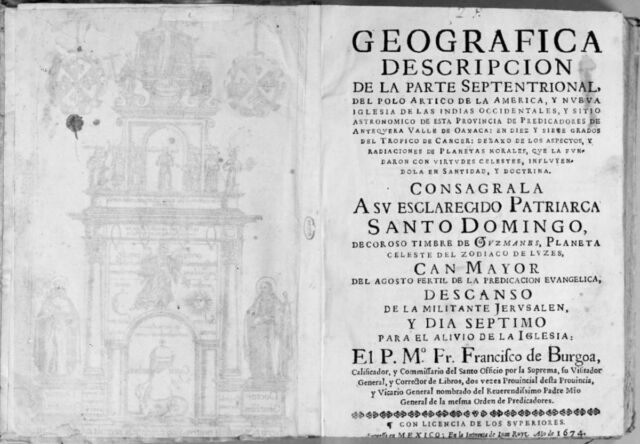 GEOGRAFICA
DESCRIPCION
DE LA PARTE SEPTENTRIONAL,
DEL POLO ARTICO DE LA AMERICA, Y NVEVA
IGLESIA DE LAS INDIAS OCCIDENTALES, Y SITIO
ASTRONOMICO DE ESTA PROVINCIA DE PREDICADORES DE
ANTEQVERA VALLE DE OAXACA: EN DIEZ Y SIETE GRADOS
DEL TROPICO DE CANCER: DEBAXO DE LOS ASPECTOS, Y
RADIACIONES DE PLANETAS MORALES, QVE LA FVN-
DARON CON VIRTVDES CELESTES, INFLVYEN-
DOLA EN SANTIDAD, Y DOCTRINA.
CONSAGRALA
A SV ESCLARECIDO PATRIARCA
SANTO DOMINGO,
DECOROSO TIMBRE DE GVZMANES, PLANETA
CELESTE DEL ZODIACO DE LVZES,
CAN MAYOR
DEL AGOSTO FERTIL DE LA PREDICACION EVANGELICA,
DESCANSO
DE LA MILITANTE JERVSALEN,
Y DIA SEPTIMO
PARA EL ALIVIO DE LA IGLESIA:
El P. Mº. Fr. Franciſco de Burgoa,
Calificador, y Commiſſario del Santo Officio por la Suprema, ſu Viſitador
General, y Corrector de Libros, dos vezes Provincial deſta Provincia,
y Vicario General nombrado del Reverendiſsimo Padre Mro
General de la meſma Orden de Predicadores.
¶ CON LICENCIA DE LOS SVPERIORES.
en MEXICO: En la Imprenta de Iuan Ruyz. Año de 1674.